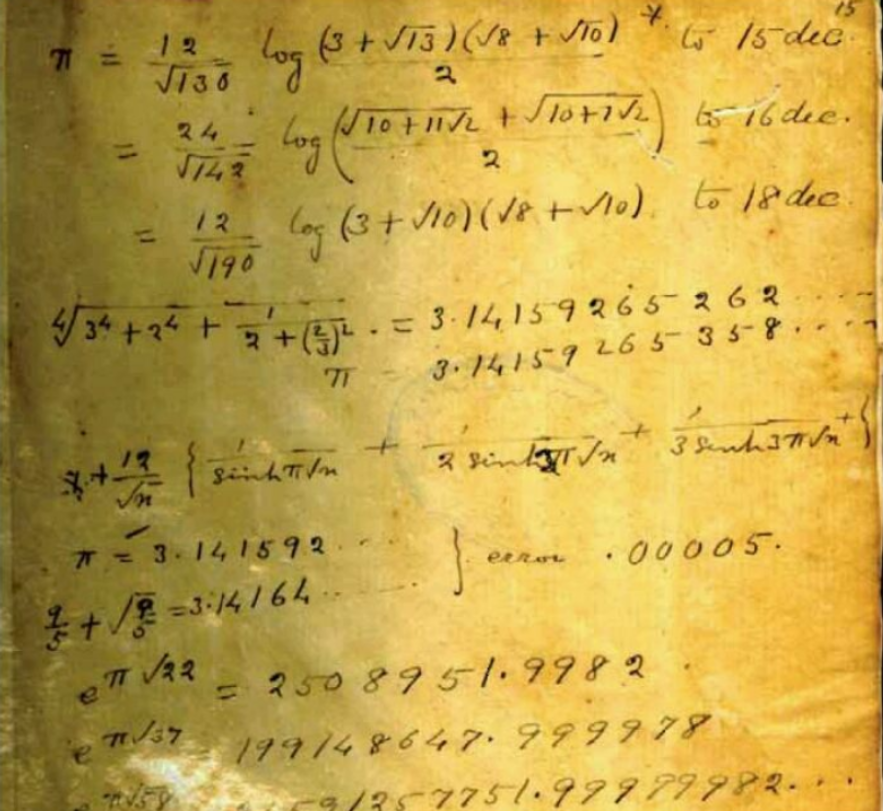 15
π = 12/√130 log (3 + √13)(√8 + √10)/2 * to 15 dec.
= 24/√142 log (√(10 + 11√2) + √(10 + 7√2))/2 to 16 dec.
= 12/√190 log (3 + √10)(√8 + √10) to 18 dec.
∜(3⁴ + 2⁴ + 1/(2 + (2/3)²)) = 3.14159265262....
π 3.14159265358....
* + 12/√n { 1/(sinh π√n) + 1/(2 sinh 2π√n) + 1/(3 sinh 3π√n) + }
π = 3.141592... } error .00005.
9/5 + √(9/5) = 3.14164...
e^(π√22) = 2508951.9982.
e^(π√37) 199148647.999978
e^(π√58) 591257751.99999982...